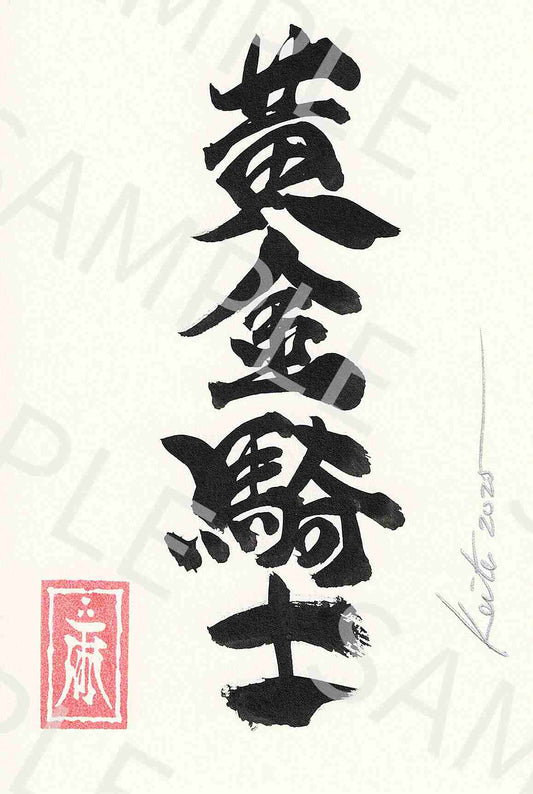 黄金騎士
Keita 2025
SAMPLE
SAMPLE
SAMPLE
SAMPLE